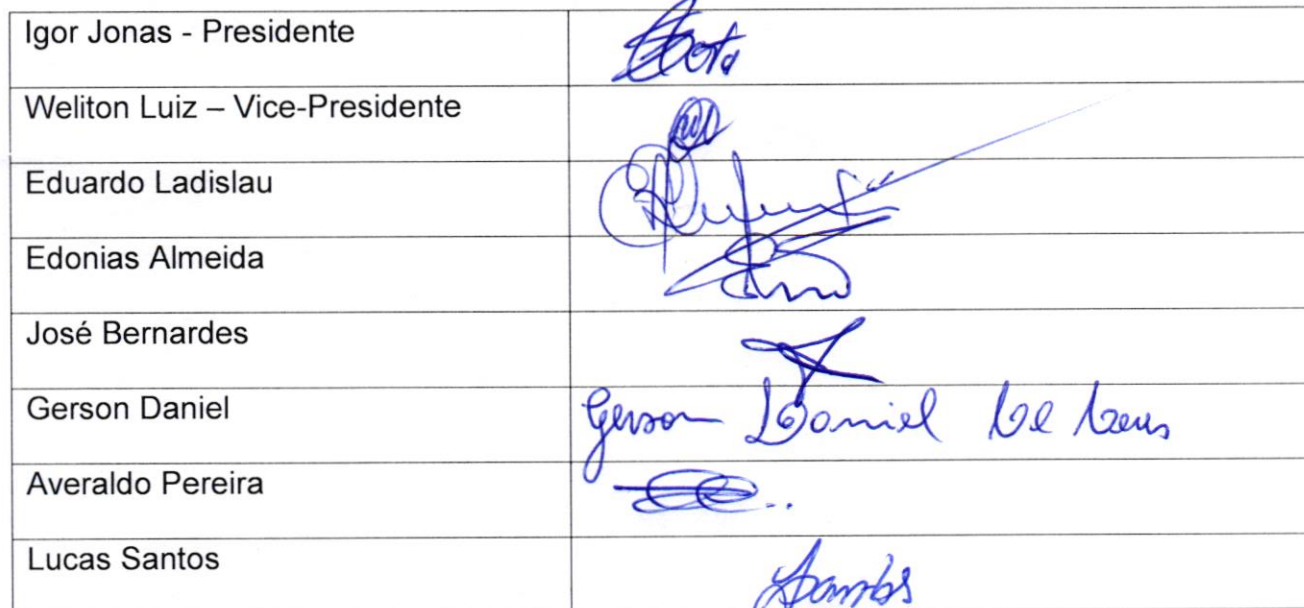 Igor Jonas - Presidente
Weliton Luiz – Vice-Presidente
Eduardo Ladislau
Edonias Almeida
José Bernardes
Gerson Daniel
Gerson Daniel De Deus
Averaldo Pereira
Lucas Santos
Santos